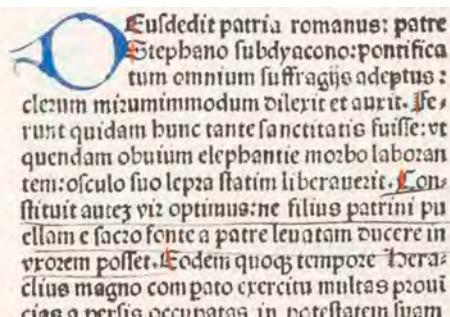 DEusdedit patria romanus: patre
Stephano subdyacono: pontifica
tum omnium suffragijs adeptus:
clerum mirumimmodum dilexit et auxit. Fe⸗
runt quidam hunc tante sanctitatis fuisse: vt
quendam obuium elephantie morbo laboran
tem: osculo suo lepra statim liberauerit. Con⸗
stituit auteʒ vir optimus: ne filius patrini pu
ellam e sacro fonte a patre leuatam ducere in
vxorem posset. Eodem quoqʒ tempore Hera⸗
clius magno comparato exercitu multas proui
cias a persis occupatas in potestatem suam